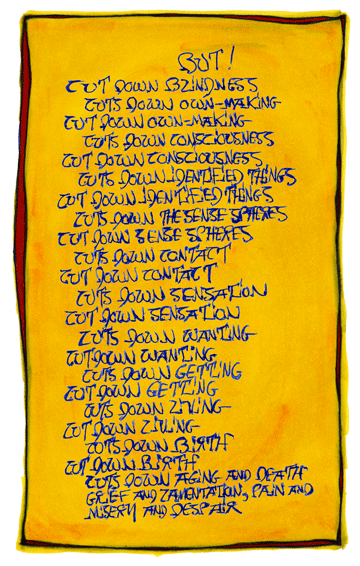 BUT!
CUT DOWN BLINDNESS
CUTS DOWN OWN-MAKING
CUT DOWN OWN-MAKING
CUTS DOWN CONSCIOUSNESS
CUT DOWN CONSCIOUSNESS
CUTS DOWN IDENTIFIED THINGS
CUT DOWN IDENTIFIED THINGS
CUTS DOWN THE SENSE SPHERES
CUT DOWN SENSE SPHERES
CUTS DOWN CONTACT
CUT DOWN CONTACT
CUTS DOWN SENSATION
CUT DOWN SENSATION
CUTS DOWN WANTING
CUT DOWN WANTING
CUTS DOWN GETTING
CUT DOWN GETTING
CUTS DOWN LIVING
CUT DOWN LIVING
CUTS DOWN BIRTH
CUT DOWN BIRTH
CUTS DOWN AGING AND DEATH
GRIEF AND LAMENTATION, PAIN AND
MISERY AND DESPAIR